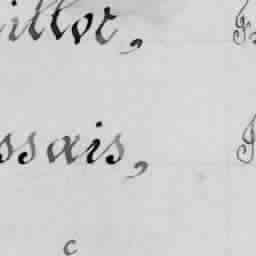 illot,
ssais,
c